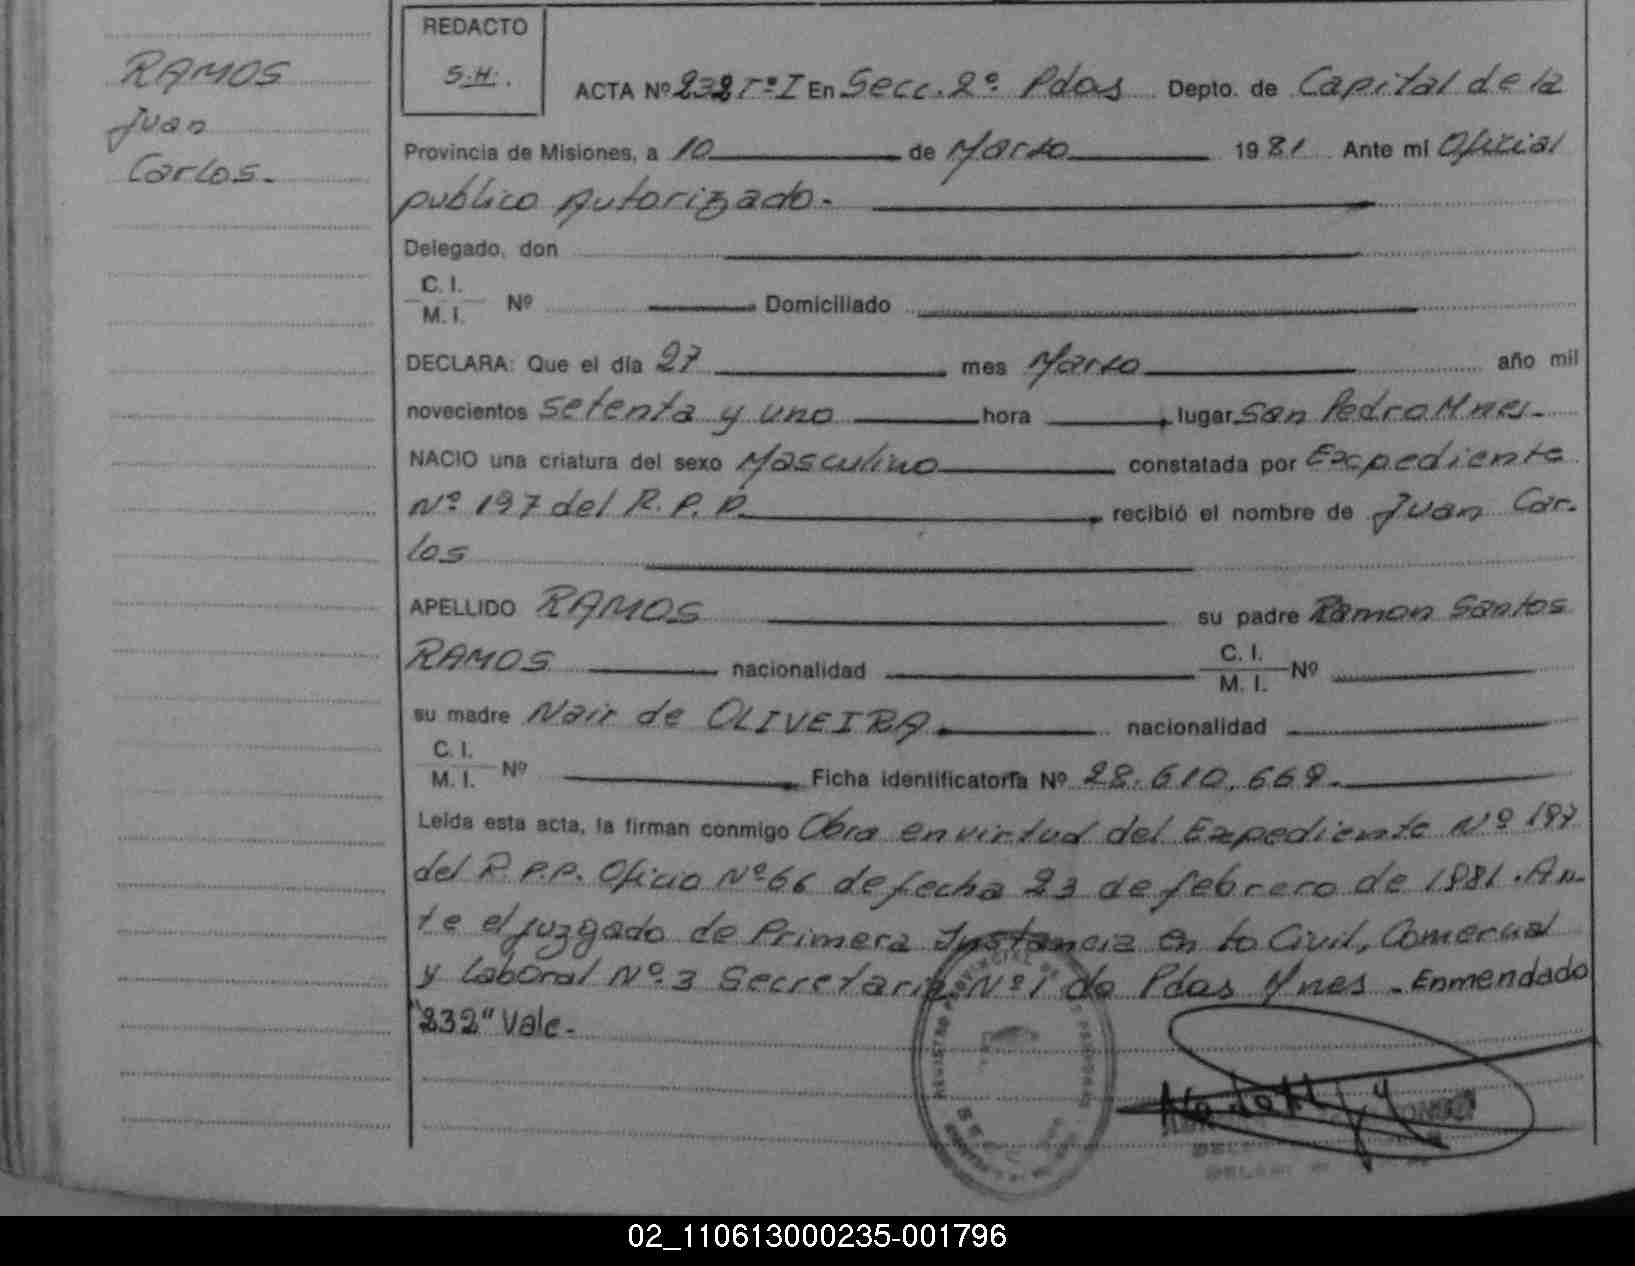 RAMOS
Juan
Carlos.-
REDACTO
S.H.
ACTA Nº 232 Tº I En Secc. 2º Pdas Depto. de Capital de la
Provincia de Misiones, a 10 de Marzo 1981 Ante mi Oficial
publico Autorizado.-
Delegado, don
C. I.
M. I. Nº Domiciliado
DECLARA: Que el día 27 mes Marzo año mil
novecientos setenta y uno hora , lugar San Pedro Mnes.-
NACIO una criatura del sexo Masculino constatada por Expediente
Nº 197 del R. P. P. , recibió el nombre de Juan Car-
los
APELLIDO RAMOS su padre Ramon Santos
RAMOS nacionalidad C. I. M. I. Nº
su madre Nair de OLIVEIRA nacionalidad
C. I.
M. I. Nº Ficha identificatoria Nº 28.610.669.-
Leída esta acta, la firman conmigo Obra en virtud del Expediente Nº 197
del R.P.P. Oficio Nº 66 de fecha 23 de febrero de 1981. An-
te el juzgado de Primera Instancia en lo Civil, Comercial
y Laboral Nº 3 Secretaria Nº 1 de Pdas Mnes.- Enmendado
"232" Vale.-
02_110613000235-001796